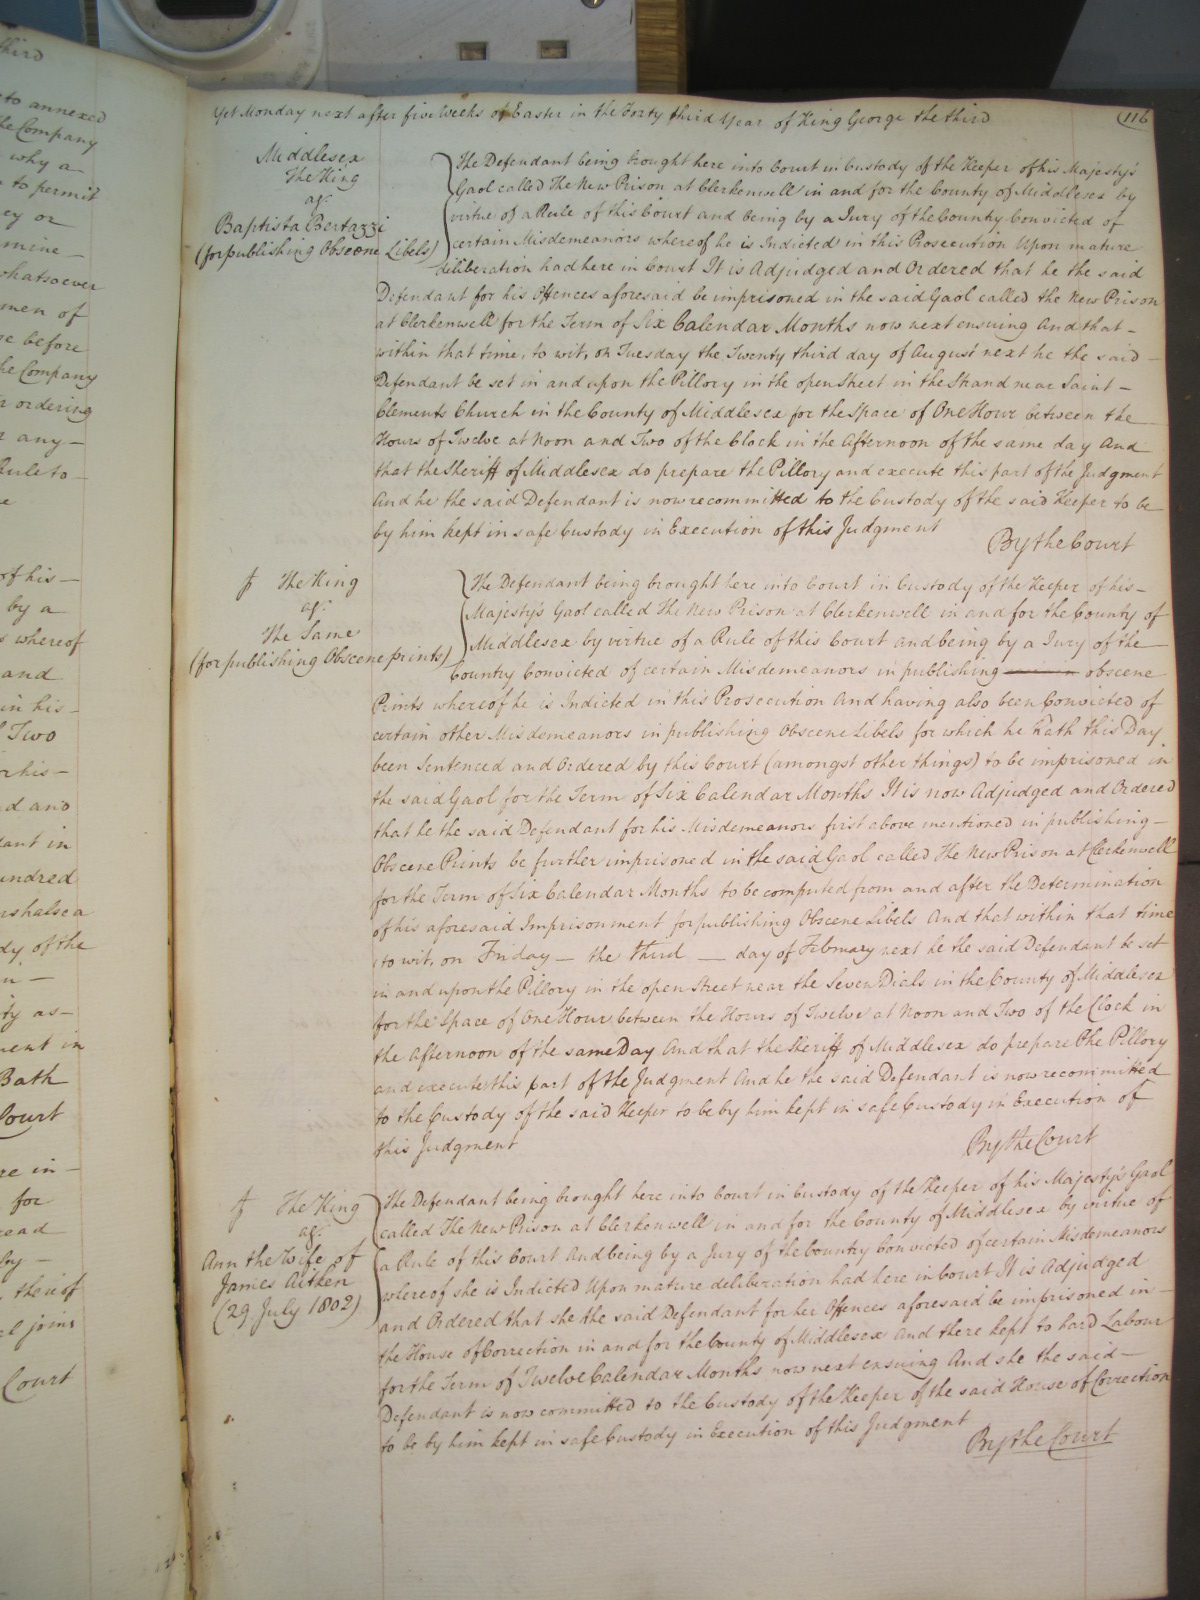 third
to annexed
the Company
why a
to permit
ey or
mine -
whatsoever
men of
re before
the Company
r ordering
any -
Rule to -
of his -
by a
s whereof
and
in his -
Two
r his -
d and
dant in
undred
rshalsea
dy of the
ty as -
ment in
Bath
Court
re in -
for
read
by -
the of
joins
Court
Yet Monday next after five Weeks of Easter in the Forty third Year of King George the third
116
Middlesex
The King
agt.
Baptista Bertazzi
(for publishing Obscene Libels)
The Defendant being brought here into Court in Custody of the Keeper of his Majesty's
Gaol called The New Prison at Clerkenwell in and for the County of Middlesex by
virtue of a Rule of this Court and being by a Jury of the County Convicted of
certain Misdemeanors whereof he is Indicted in this Prosecution Upon mature
deliberation had here in Court It is Adjudged and Ordered that he the said
Defendant for his Offences aforesaid be imprisoned in the said Gaol called the New Prison
at Clerkenwell for the Term of Six Calendar Months now next ensuing And that -
within that time, to wit, on Tuesday the Twenty third day of August next he the said -
Defendant be set in and upon the Pillory in the open Street in the Strand near Saint -
Clements Church in the County of Middlesex for the Space of One Hour between the
Hours of Twelve at Noon and Two of the Clock in the Afternoon of the same day And
that the Sheriff of Middlesex do prepare the Pillory and execute this part of the Judgment
And he the said Defendant is now recommitted to the Custody of the said Keeper to be
by him kept in safe Custody in Execution of this Judgment
By the Court
The King
agt.
The Same
(for publishing Obscene prints)
The Defendant being brought here into Court in Custody of the Keeper of his -
Majesty's Gaol called The New Prison at Clerkenwell in and for the County of
Middlesex by virtue of a Rule of this Court and being by a Jury of the
Country Convicted of certain Misdemeanors in publishing obscene
Prints whereof he is Indicted in this Prosecution And having also been Convicted of
certain other Misdemeanors in publishing Obscene Libels for which he hath this Day
been Sentenced and Ordered by this Court (amongst other things) to be imprisoned in
the said Gaol for the Term of Six Calendar Months It is now Adjudged and Ordered
that he the said Defendant for his Misdemeanors first above mentioned in publishing -
Obscene Prints be further imprisoned in the said Gaol called The New Prison at Clerkenwell
for the Term of Six Calendar Months to be computed from and after the Determination
of his aforesaid Imprisonment for publishing Obscene Libels And that within that time
to wit, on Friday - the third - day of February next he the said Defendant be set
in and upon the Pillory in the open Street near the Seven Dials in the County of Middlesex
for the Space of One Hour between the Hours of Twelve at Noon and Two of the Clock in
the Afternoon of the same Day And that the Sheriff of Middlesex do prepare the Pillory
and execute this part of the Judgment And he the said Defendant is now recommitted
to the Custody of the said Keeper to be by him kept in safe Custody in Execution of
this Judgment
By the Court
The King
agt.
Ann the Wife of
James Aitken
(29 July 1802)
The Defendant being brought here into Court in Custody of the Keeper of his Majesty's Gaol
called The New Prison at Clerkenwell in and for the County of Middlesex by virtue of
a Rule of this Court And being by a Jury of the Country Convicted of certain Misdemeanors
whereof she is Indicted Upon mature deliberation had here in Court It is Adjudged
and Ordered that she the said Defendant for her Offences aforesaid be imprisoned in -
the House of Correction in and for the County of Middlesex And there kept to hard Labour
for the Term of Twelve Calendar Months now next ensuing And she the said -
Defendant is now committed to the Custody of the Keeper of the said House of Correction
to be by him kept in safe Custody in Execution of this Judgment
By the Court